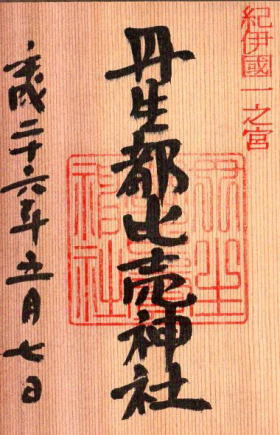 紀伊國一之宮
丹生都比売神社
平成二十六年五月七日